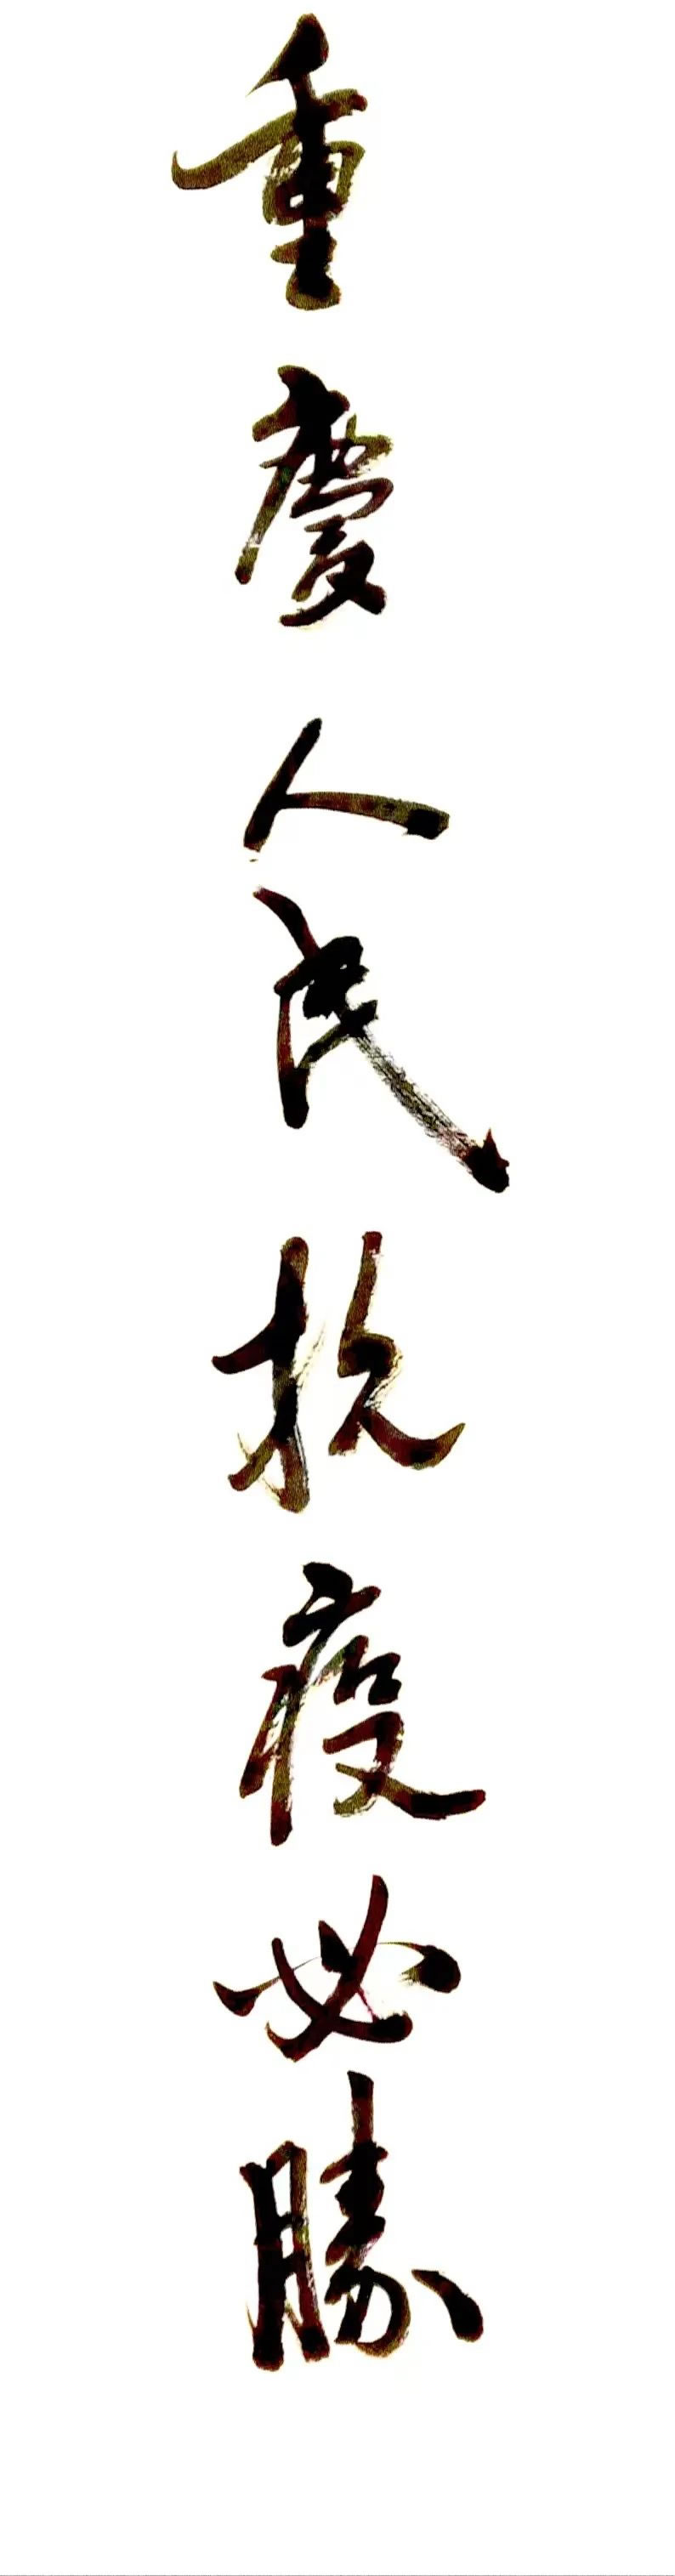 重慶人民抗疫必勝